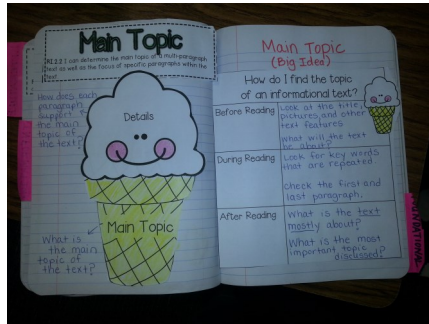 Main Topic
RI.2.2 I can determine the main topic of a multi-paragraph
text as well as the focus of specific paragraphs within the
text
How does each
paragraph
support
the main
topic of
the text?
Details
Main Topic
What is
the main
topic of
the text?
Main Topic
(Big Idea)
How do I find the topic
of an informational text?
Before Reading
Look at the title,
pictures, and other
text features
What will the text
be about?
During Reading
Look for key words
that are repeated.
check the first and
last paragraph.
After Reading
What is the text
mostly about?
What is the most
important topic
discussed?